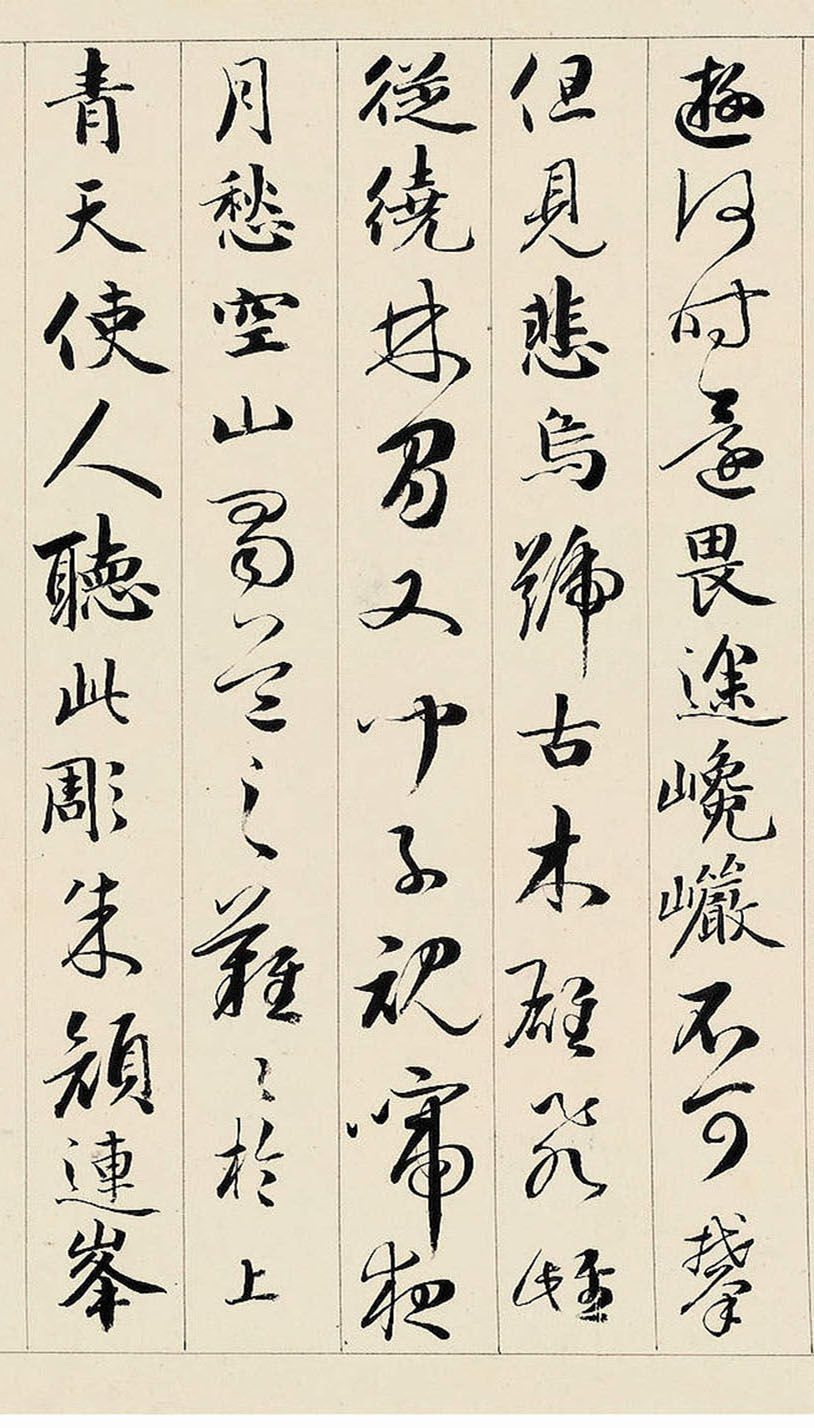 遊何時還畏途巉巖不可攀
但見悲鳥號古木雄飛雌
從繞林間又聞子規啼夜
月愁空山蜀道之難〻於上
青天使人聽此彫朱顏連峯